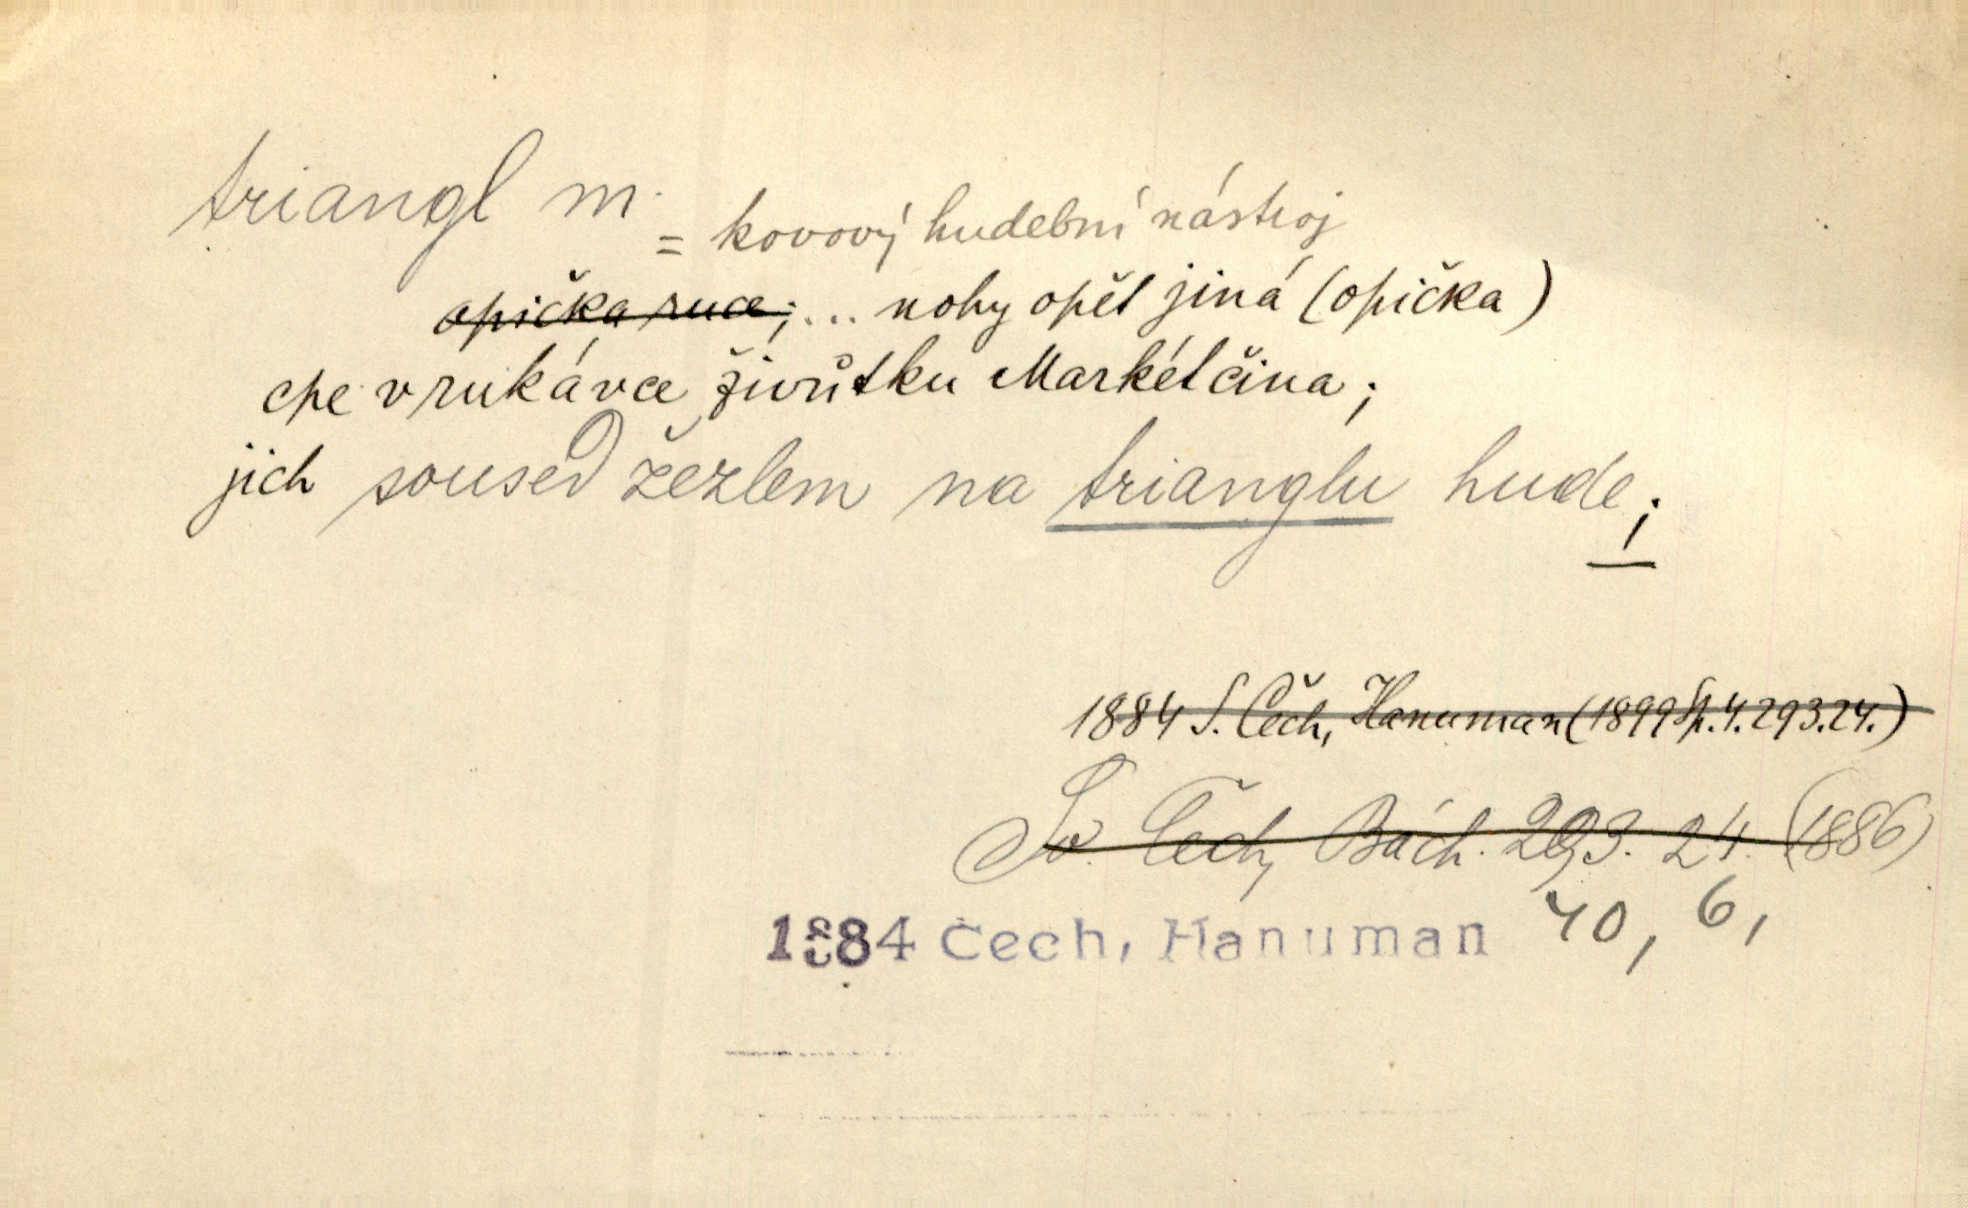 triangl m.
= kovový hudební nástroj
opička ruce; ... nohy opět jiná (opička)
cpe v rukávce živůtku Markétčina;
jich soused žezlem na trianglu hude;
1884 S. Čech, Hanuman (1899 Sp. 4. 293. 24.)
Sv. Čech, Bách. 293. 24. (1886)
1884 Čech, Hanuman 40, 6,